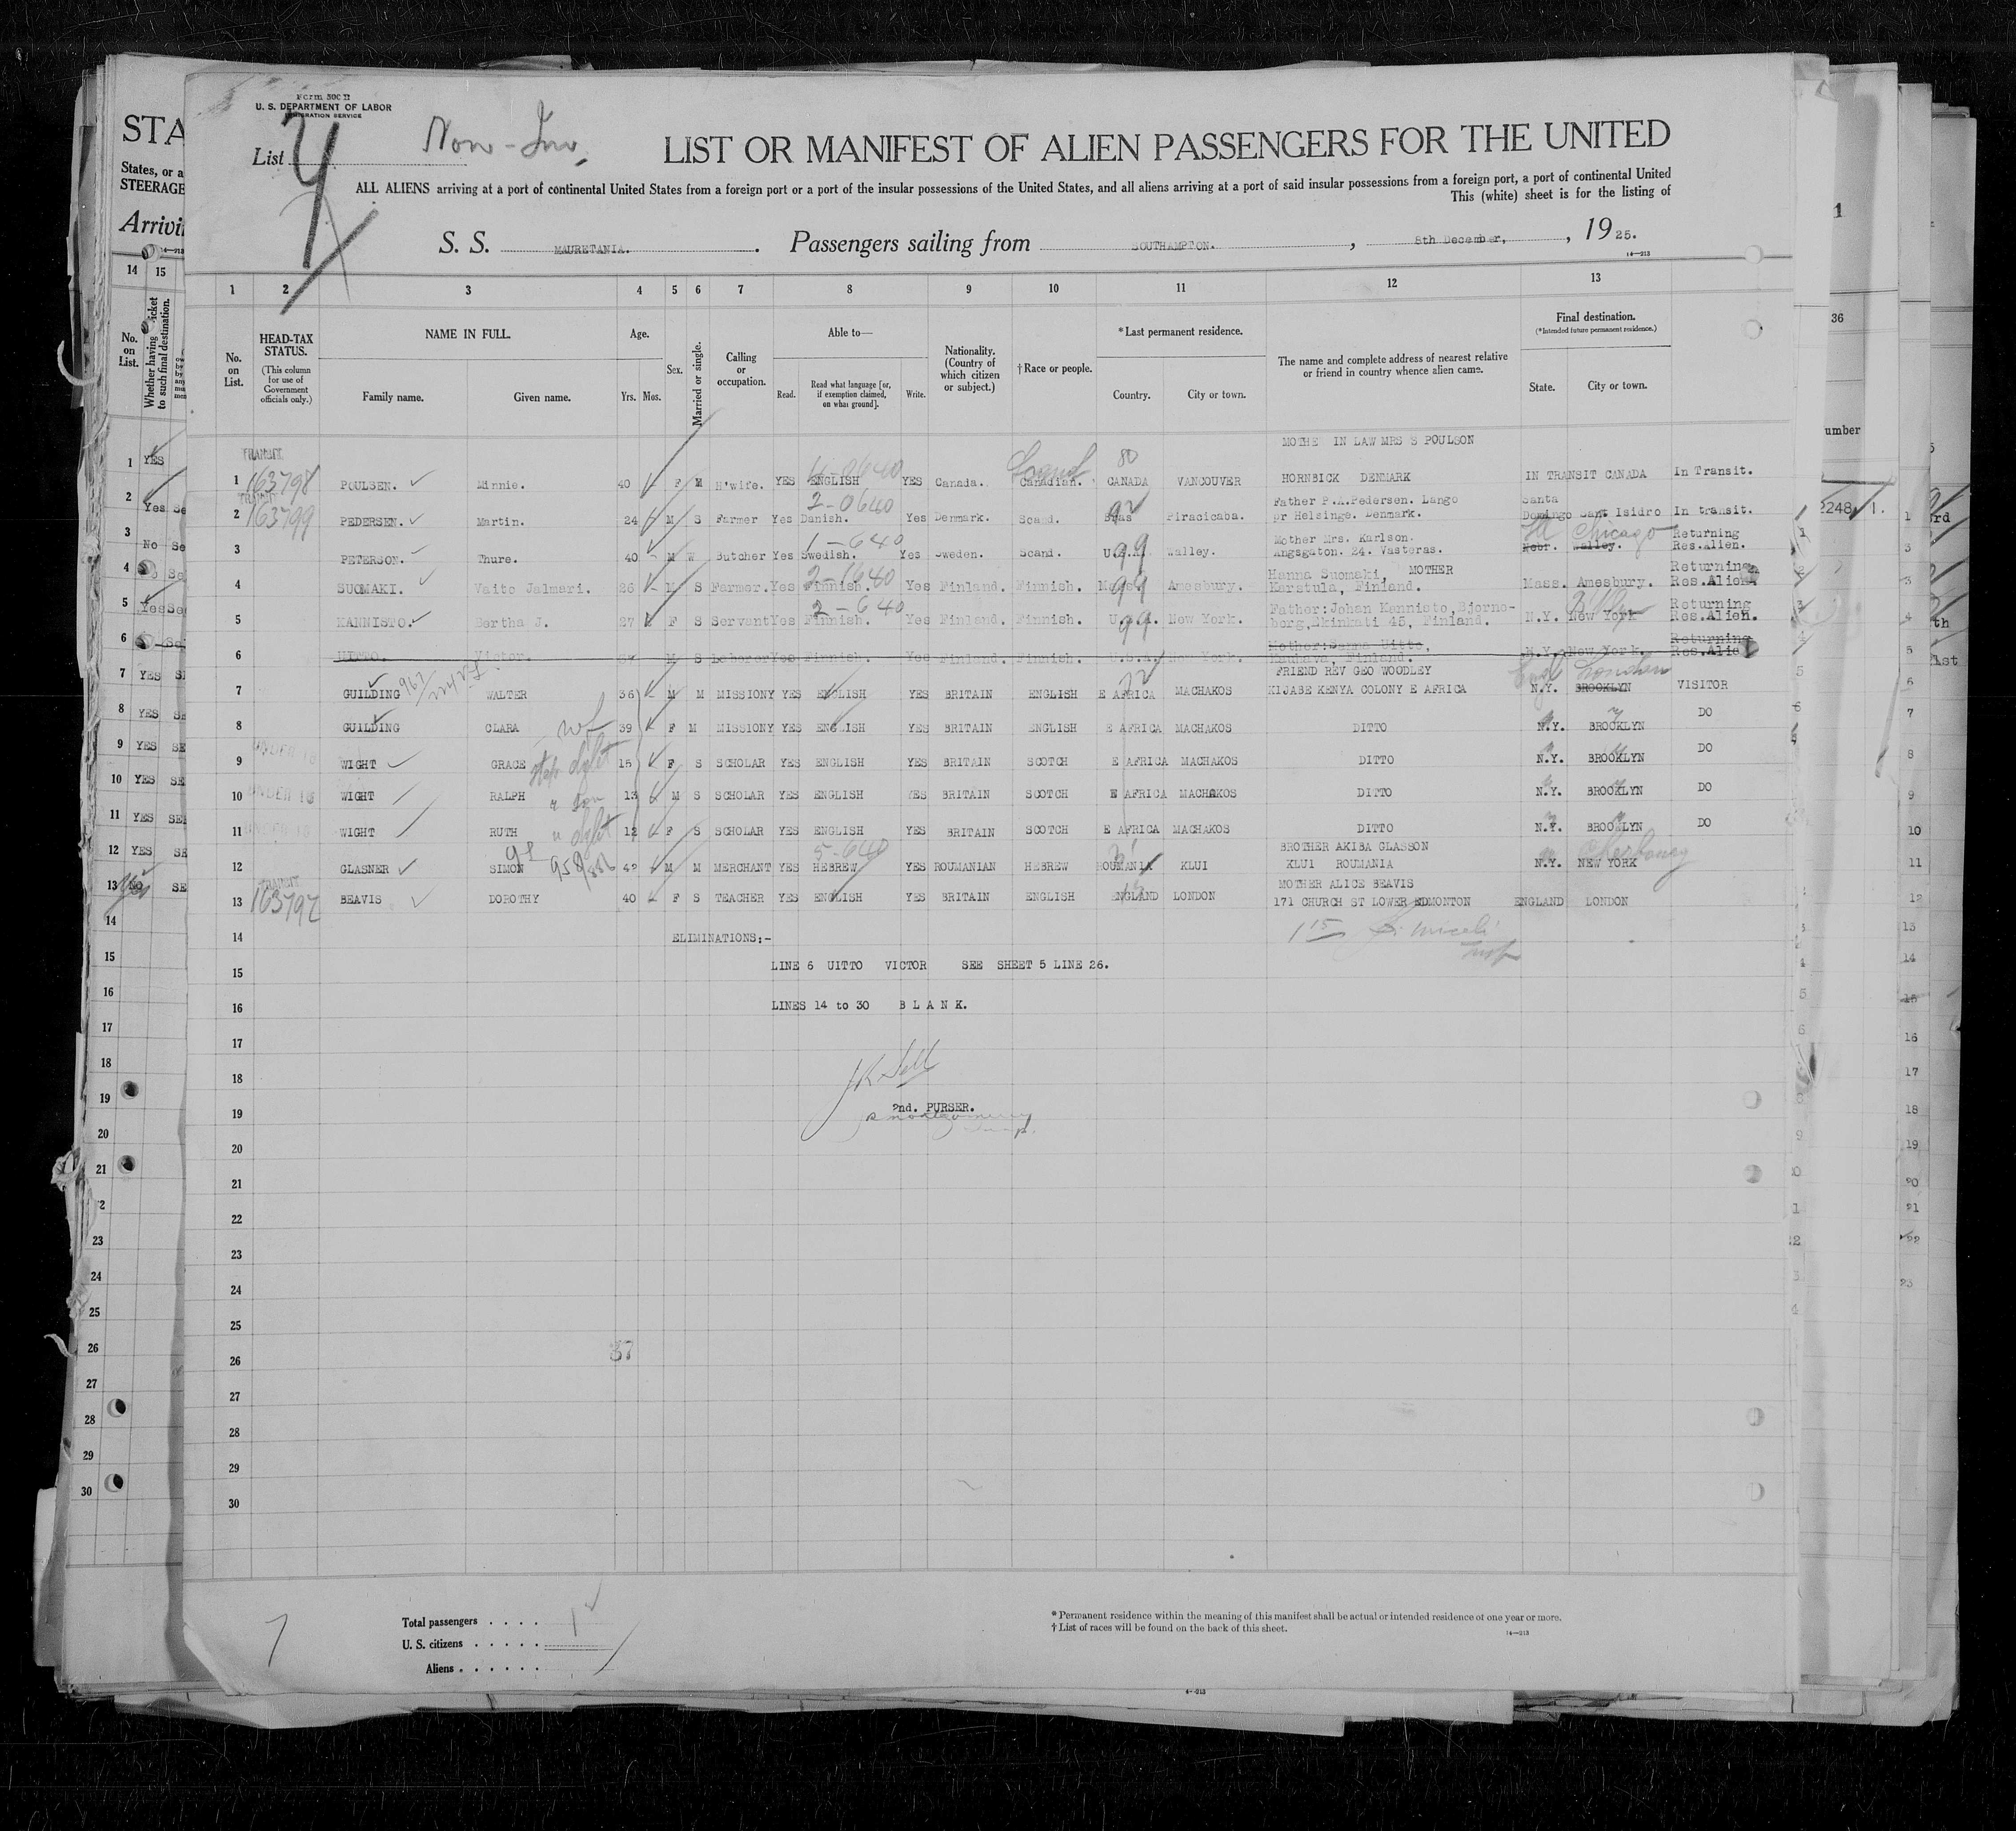 Form 500 B
U. S. DEPARTMENT OF LABOR
IMMIGRATION SERVICE
List
Non-Im.
LIST OR MANIFEST OF ALIEN PASSENGERS FOR THE UNITED
ALL ALIENS arriving at a port of continental United States from a foreign port or a port of the insular possessions of the United States, and all aliens arriving at a port of said insular possessions from a foreign port, a port of continental United
This (white) sheet is for the listing of
S. S. MAURETANIA. Passengers sailing from SOUTHAMPTON. , 8th December, , 1925.
14—213
1 2 3 4 5 6 7 8 9 10 11 12 13
No. on List.
HEAD-TAX STATUS.
(This column for use of Government officials only.)
NAME IN FULL.
Family name. Given name.
Age.
Yrs. Mos.
Sex.
Married or single.
Calling or occupation.
Able to—
Read. Read what language [or, if exemption claimed, on what ground]. Write.
Nationality. (Country of which citizen or subject.)
† Race or people.
* Last permanent residence.
Country. City or town.
The name and complete address of nearest relative or friend in country whence alien came.
Final destination.
(*Intended future permanent residence.)
State. City or town.
TRANSIT 4-0640 Scand. 80 MOTHE IN LAW MRS S POULSON
1 163798 POULSEN. Minnie. 40 F M H'wife. YES ENGLISH YES Canada. Canadian. CANADA VANCOUVER HORNBICK DENMARK IN TRANSIT CANADA In Transit.
TRANSIT 2-0640 Father P.A.Pedersen. Lango Santa
2 163799 PEDERSEN. Martin. 24 M S Farmer Yes Danish. Yes Denmark. Scand. Piracicaba. pr Helsinge. Denmark. Domingo Sant Isidro In transit.
1-640 Mother Mrs. Karlson. Chicago Returning
3 PETERSON. Thure. 40 M W Butcher Yes Swedish. Yes Sweden. Scand. U.S.A. 99 Walley. Angsgaton. 24. Vasteras. Nebr. Walley. Res.Alien.
2-1640 Hanna Suomaki, MOTHER Returning
4 SUOMAKI. Vaito Jalmari. 26 M S Farmer. Yes Finnish. Yes Finland. Finnish. 99 Amesbury. Karstula, Finland. Mass. Amesbury. Res.Alien
2-640 Father: Johan Kannisto, Bjorno- Returning
5 KANNISTO. Bertha J. 27 F S Servant Yes Finnish. Yes Finland. Finnish. U.S.A. 99 New York. borg, Ekinkati 45, Finland. N.Y. New York Res.Alien.
Mother: Sanna Uitto, Returning
6 UITTO. Victor. M S Laborer Yes Finnish. Yes Finland. Finnish. U.S.A. New York. Kauhava, Finland. N.Y. New York. Res.Alie
FRIEND REV GEO WOODLEY Eng London
7 GUILDING WALTER 36 M M MISSIONY YES ENGLISH YES BRITAIN ENGLISH E AFRICA MACHAKOS KIJABE KENYA COLONY E AFRICA N.Y. BROOKLYN VISITOR
8 GUILDING CLARA wf 39 F M MISSIONY YES ENGLISH YES BRITAIN ENGLISH E AFRICA MACHAKOS DITTO N.Y. BROOKLYN DO
UNDER 16
9 WIGHT GRACE step daht 15 F S SCHOLAR YES ENGLISH YES BRITAIN SCOTCH E AFRICA MACHAKOS DITTO N.Y. BROOKLYN DO
UNDER 16
10 WIGHT RALPH " son 13 M S SCHOLAR YES ENGLISH YES BRITAIN SCOTCH E AFRICA MACHAKOS DITTO N.Y. BROOKLYN DO
UNDER 16
11 WIGHT RUTH " daht 12 F S SCHOLAR YES ENGLISH YES BRITAIN SCOTCH E AFRICA MACHAKOS DITTO N.Y. BROOKLYN DO
5-640 BROTHER AKIBA GLASSON Cherbourg
12 GLASNER SIMON 42 M M MERCHANT YES HEBREW YES ROUMANIAN HEBREW ROUMANIA KLUI KLUI ROUMANIA N.Y. NEW YORK
TRANSIT MOTHER ALICE BEAVIS
13 163797 BEAVIS DOROTHY 40 F S TEACHER YES ENGLISH YES BRITAIN ENGLISH ENGLAND LONDON 171 CHURCH ST LOWER EDMONTON ENGLAND LONDON
14 ELIMINATIONS;-
15 LINE 6 UITTO VICTOR SEE SHEET 5 LINE 26.
16 LINES 14 to 30 B L A N K.
17
18
19 2nd. PURSER.
20
21
22
23
24
25
26
27
28
29
30
37
7
Total passengers . . . .
U. S. citizens . . . . .
Aliens . . . . . .
* Permanent residence within the meaning of this manifest shall be actual or intended residence of one year or more.
† List of races will be found on the back of this sheet.
14—213
STA
States, or a
STEERAGE
Arrivi
14 15
No. on List.
Whether having ticket to such final destination.
1 YES
2 Yes Se
3 No Se
4 Se
5 Yes Se
6 Se
7 YES SE
8 YES SE
9 YES SE
10 YES SE
11 YES SE
12 YES SE
13 Yes SE
14
15
16
17
18
19
20
21
2
23
24
25
26
27
28
29
30
1
36
umber
2248 1.